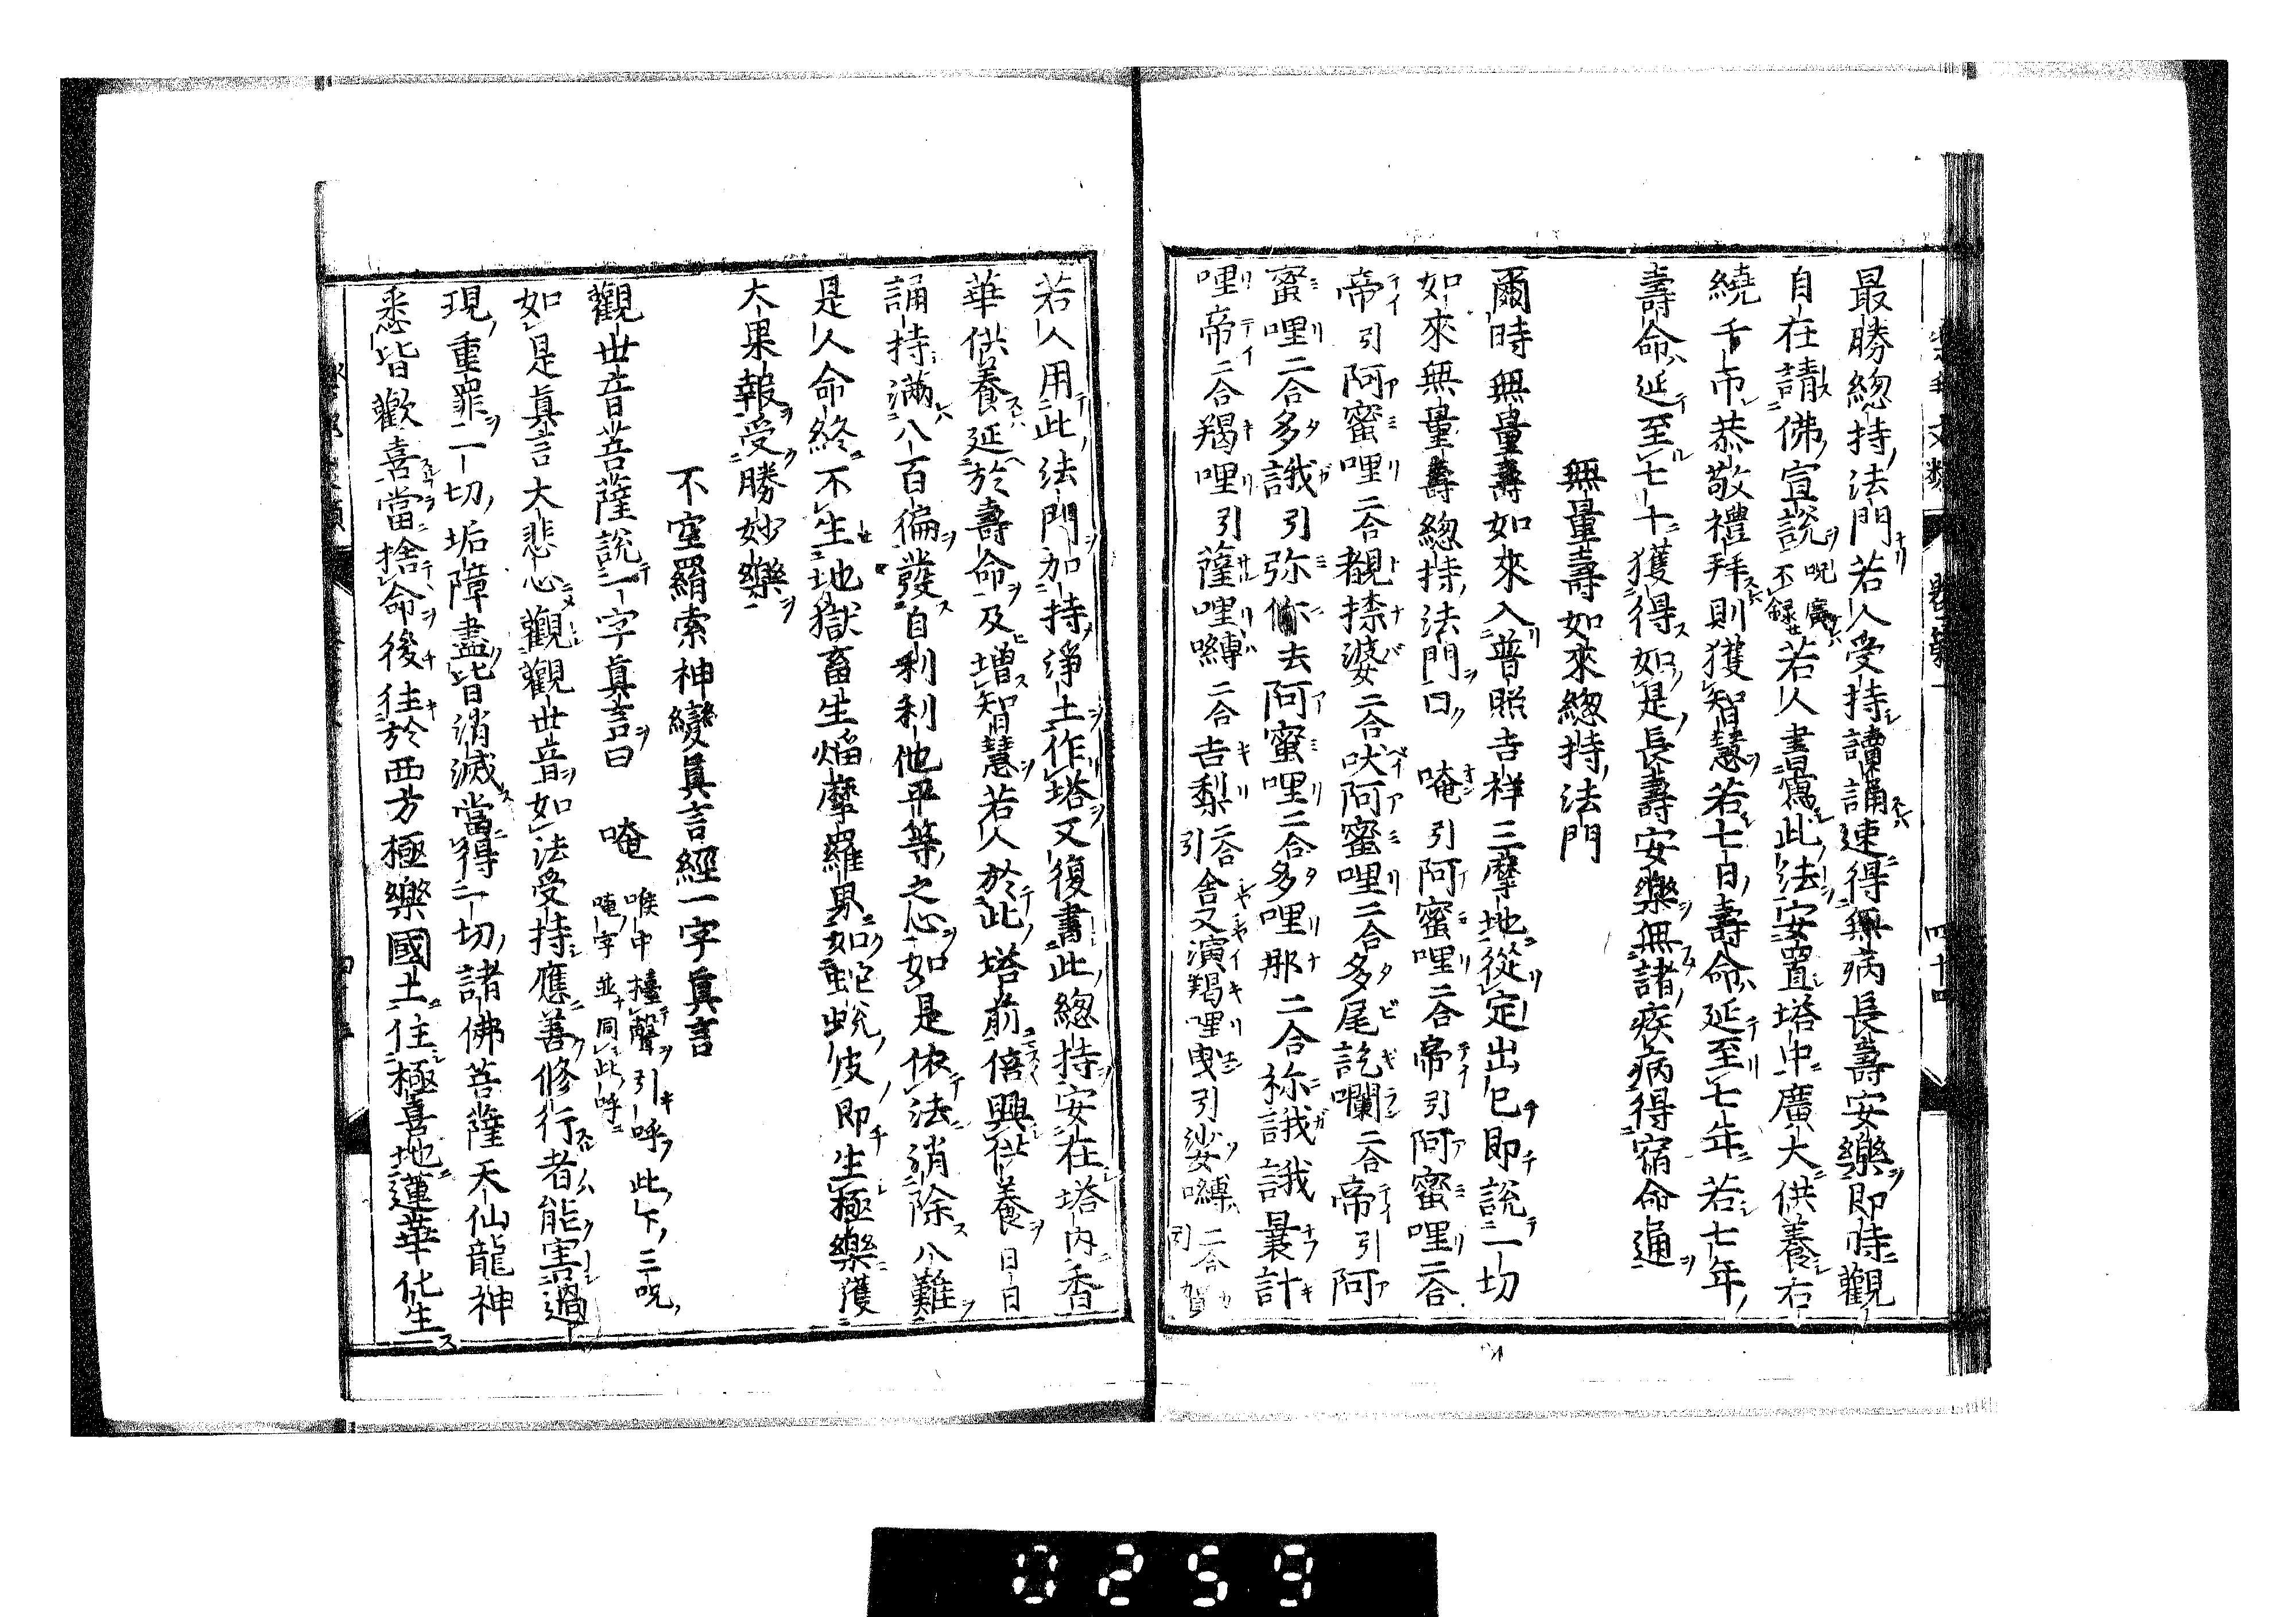 最勝總持法門若人受持讀誦速得無病長壽安樂即時觀
自在請佛宣説呪廣不録若人書寫此法安置塔中廣大供養右
繞千帀恭敬禮拜則獲智慧若七日壽命延至七年若七年
壽命延至七十獲得如是長壽安樂無諸疾病得宿命通
無量壽如來總持法門
爾時無量壽如來入普照吉祥三摩地從定出已即説一切
如來無量壽總持法門曰 唵引阿蜜哩二合帝引阿蜜哩二合
帝引阿蜜哩二合覩捺婆二合吠阿蜜哩二合多尾訖囕二合帝引阿
蜜哩二合多誐引弥你去阿蜜哩二合多哩那二合祢誐誐曩計
哩帝二合羯哩引薩哩嚩二合吉梨二合引舍又演羯哩曳引娑嚩二合引賀
若人用此法門加持淨土作塔又復書此總持安在塔内香
華供養延於壽命及增智慧若人於此塔前倍興供養日日
誦持滿八百徧發自利利他平等之心如是依法消除八難
是人命終不生地獄畜生焔摩羅界如蛇蛻皮即生極樂獲
大果報受勝妙樂
不空羂索神變眞言經一字眞言
觀世音菩薩説一字眞言曰 唵 喉中擡聲引呼此下三呪
唵字並同此呼
如是眞言大悲心觀觀世音如法受持應善修行者能害過
現重罪一切垢障盡皆消滅當得一切諸佛菩薩天仙龍神
悉皆歡喜當捨命後往於西方極樂國土住極喜地蓮華化生
四十四
0259